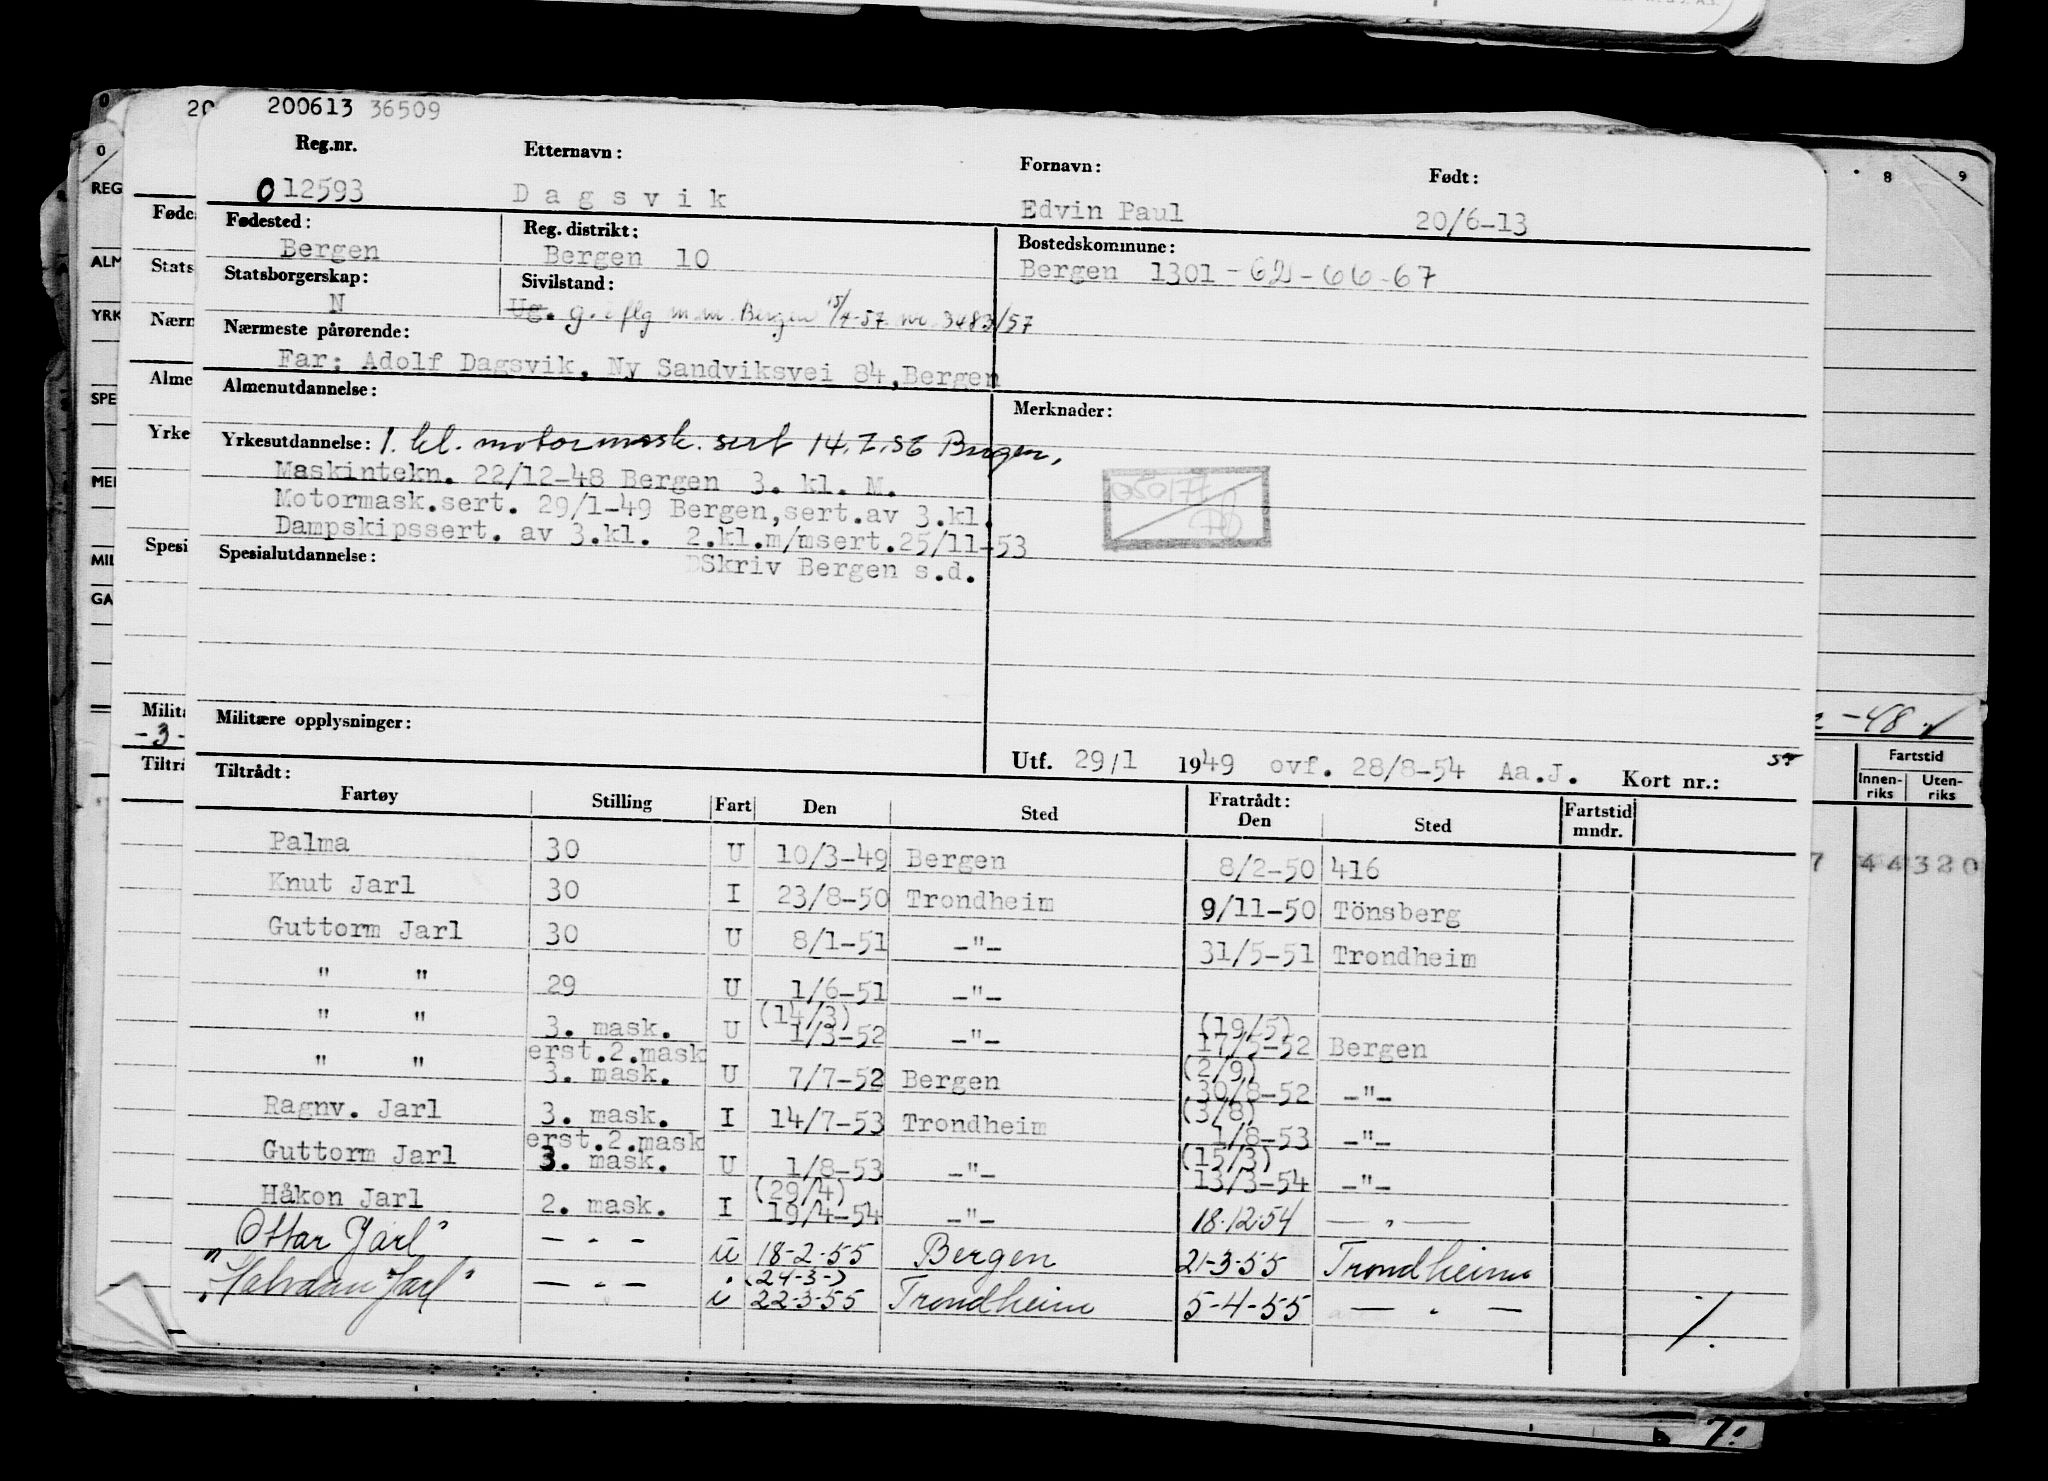 200613 36509
Reg.nr. Etternavn: Fornavn: Født:
012593 Dagsvik Edvin Paul 20/6-13
Fødested: Reg. distrikt: Bostedskommune:
Bergen Bergen 10 Bergen 1301 - 62 - 66 - 67
Statsborgerskap: Sivilstand:
N Ug. g. iflg m.m. Bergen 15/4-57 nr. 3483/57
Nærmeste pårørende:
Far: Adolf Dagsvik, Ny Sandviksvei 84, Bergen
Almenutdannelse: Merknader:
Yrkesutdannelse: 1. kl. motormask. sert 14.7.56 Bergen.
Maskintekn. 22/12-48 Bergen 3. kl. M.
Motormask.sert. 29/1-49 Bergen, sert.av 3.kl.
Dampskipssert. av 3.kl. 2.kl.m/msert.25/11-53
Spesialutdannelse: DSkriv Bergen s.d.
Militære opplysninger:
Utf. 29/1 1949 ovf. 28/8-54 Aa.J. Kort nr.:
Tiltrådt: Fratrådt:
Fartøy Stilling Fart Den Sted Den Sted Fartstid mndr.
Palma 30 U 10/3-49 Bergen 8/2-50 416
Knut Jarl 30 I 23/8-50 Trondheim 9/11-50 Tönsberg
Guttorm Jarl 30 U 8/1-51 -"- 31/5-51 Trondheim
" " 29 U 1/6-51 -"-
" " 3. mask. U (14/3) 1/3-52 -"- (19/5) 17/5-52 Bergen
" " erst.2.mask 3. mask. U 7/7-52 Bergen (2/9) 30/8-52 -"-
Ragnv. Jarl 3. mask. I 14/7-53 Trondheim (3/8) 1/8-53 -"-
Guttorm Jarl erst.2.mask 3. mask. U 1/8-53 -"- (15/3) 13/3-54 -"-
Håkon Jarl 2. mask. I (29/4) 19/4-54 -"- 18.12.54 — " —
Ottar Jarl" — " — u 18-2-55 Bergen 21-3-55 Trondheim
"Halvdan Jarl" — " — i (24-3-) 22-3-55 Trondheim 5-4-55 — " —
Fartstid
Innenriks Utenriks
7 44 320
REG
ALM
YRK
SPE
MIL
GA
Føde
Stats
Nærm
Alme
Yrke
Spesi
Milit
-3-
Tiltrå
8 9
-48